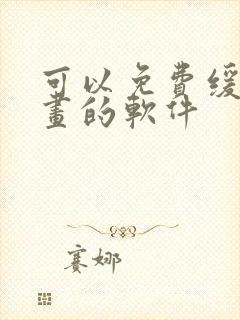 可以免費緩
畫的軟件
賽娜